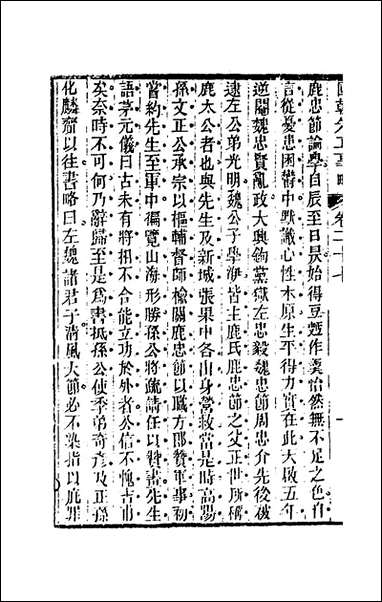 國朝先正事略 卷二十七 一
鹿忠節論學自辰至日昃始得豆麵作羹怡然無不足之色自
言從憂患困鬱中默識心性本原生平得力實在此天啟五年
逆閹魏忠賢亂政大興鉤黨獄左忠毅魏忠節周忠介先後被
逮左公弟光明魏公子學洢皆主鹿氏鹿忠節之父正世所稱
鹿太公者也與先生及新城張果中各出身營救當是時高陽
孫文正公承宗以樞輔督師榆關鹿忠節以職方郎贊軍事初
嘗約先生至軍中徧覽山海形勝孫公將疏請任以贊畫先生
語茅元儀曰古未有將相不合能立功於外者公信不愧吉甫
矣奈時不可何乃辭歸至是為書抵孫公使季弟奇彥及正孫
化麟齎以往書略曰左魏諸君子清風大節必不染指以庇罪